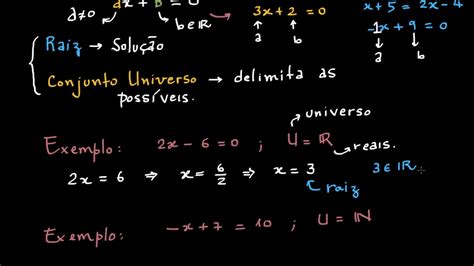 a≠0 ax + b = 0 3x + 2 = 0 x + 5 = 2x - 4
b ∈ ℝ a b -1x + 9 = 0
a b
Raiz → Solução
Conjunto Universo → delimita as
possíveis.
universo
Exemplo: 2x - 6 = 0 ; U = ℝ
reais.
2x = 6 ⇒ x = 6/2 ⇒ x = 3 3 ∈ ℝ
raiz
Exemplo: -x + 7 = 10 ; U = ℕ